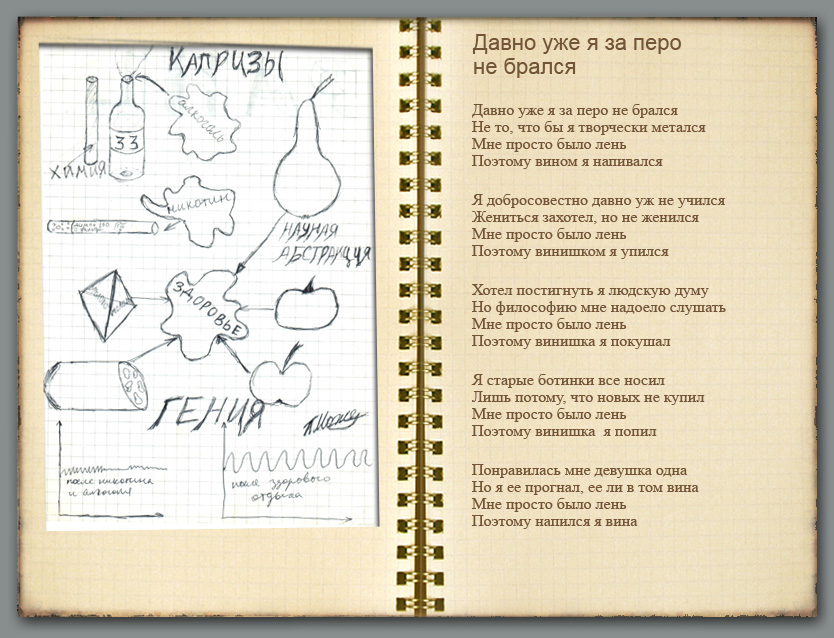 КАПРИЗЫ
алкоголь
33
ХИМИЯ
никотин
НАУЧНАЯ
АБСТРАКЦИЯ
ЗДОРОВЬЕ
ГЕНИЯ
после никотина
и алкоголя
после здорового
отдыха
Давно уже я за перо
не брался
Давно уже я за перо не брался
Не то, что бы я творчески метался
Мне просто было лень
Поэтому вином я напивался
Я добросовестно давно уж не учился
Жениться захотел, но не женился
Мне просто было лень
Поэтому винишком я упился
Хотел постигнуть я людскую думу
Но философию мне надоело слушать
Мне просто было лень
Поэтому винишка я покушал
Я старые ботинки все носил
Лишь потому, что новых не купил
Мне просто было лень
Поэтому винишка я попил
Понравилась мне девушка одна
Но я ее прогнал, ее ли в том вина
Мне просто было лень
Поэтому напился я вина